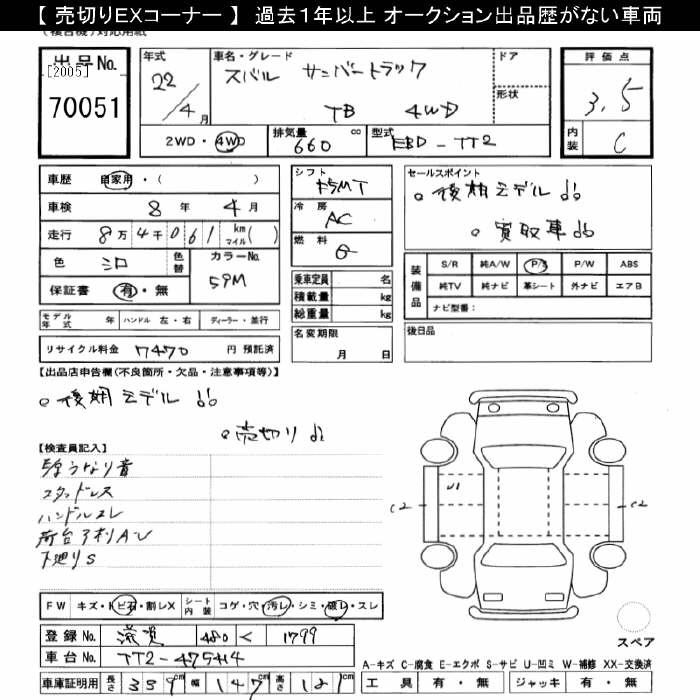 【 売切りEXコーナー 】 過去１年以上 オークション出品歴がない車両
出品No. [2005] 70051
年式 22/4月
車名・グレード スバル サンバートラック TB 4WD
ドア
形状
評価点 3.5
内装 C
2WD・4WD
排気量 660 cc
型式 EBD-TT2
車歴 自家用・( )
車検 8年 4月
走行 8万4千061 km マイル( )
色 シロ
色替
カラーNo. 59M
保証書 有・無
シフト F5MT
冷房 AC
燃料 G
乗車定員 名
積載量 kg
総重量 kg
名変期限 月 日
セールスポイント
。後期モデル!!
。買取車!!
装備品
S/R 純A/W P/S P/W ABS
純TV 純ナビ 革シート 外ナビ エアB
ナビ型番:
後日品
モデル年式 年 ハンドル 左・右 ディーラー・並行
リサイクル料金 7470 円 預託済
【出品店申告欄(不良箇所・欠品・注意事項等)】
。後期モデル!!
。売切り!!
【検査員記入】
スタッドレス
ハンドルスレ
下廻りS
U1
C2
C2
FW キズ・トビ石・割レX
シート内装 コゲ・穴・汚レ・シミ・破レ・スレ
登録No. 滋賀 480 く 1799
車台No. TT2-475414
車庫証明用 長さ 339cm 幅 147cm 高さ 181cm
スペア
A-キズ C-腐食 E-エクボ S-サビ U-凹ミ W-補修 XX-交換済
工具 有・無 ジャッキ 有・無